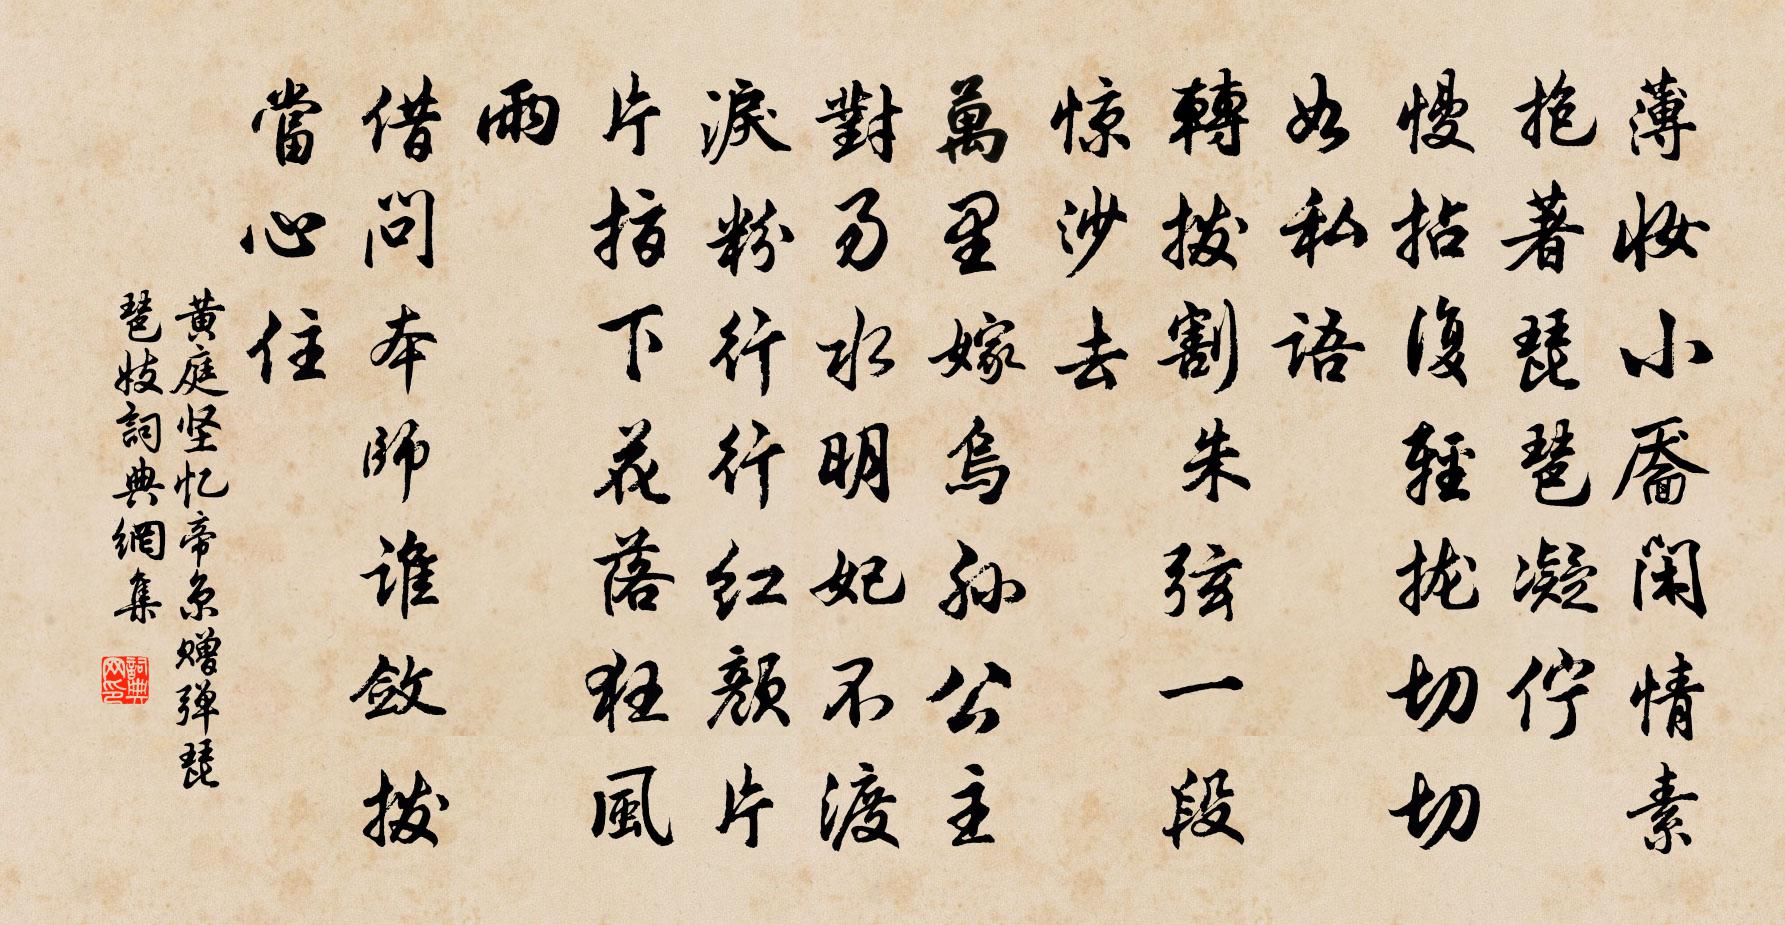 薄妝小靨閑情素
抱著琵琶凝佇
慢拈復輕攏切切
如私語
轉拨割朱弦一段
惊沙去
萬里嫁烏孙公主
對易水明妃不渡
淚粉行行红顏片
片指下花落狂風
雨
借問本師谁斂拨
當心住
黄庭坚忆帝京赠弹琵
琶妓詞典網集
詞典
网印